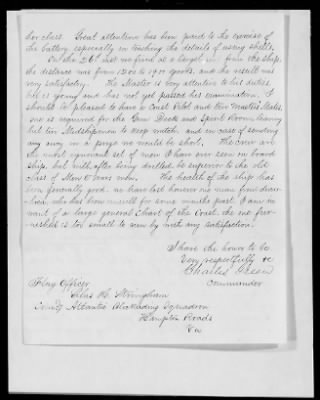 her class. Great attention has been paid to the exercise of
the battery especially in teaching the details of using shells.
On the 26th inst we fired at a target from the ship,
the distance was from 1200 to 1400 yards, and the result was
very satisfactory. The Master is very attentive to his duties,
but is young and has not yet passed his examination. I
should be pleased to have a Coast Pilot and two Master's Mates,
one is required for the Gun Deck and Spirit Room, leaving
but two Midshipmen to keep watch, and in case of sending
any away in a prize we would be short. The crew are
the most ignorant set of men I have ever seen on board
ship, but will after being drilled, be superior to the old
class of Man O'Wars men. The health of the ship has
been generally good, we have lost however one man from
who has been unwell for some months past. I am in
want of a large general Chart of the Coast, the one fur-
nished is too small to use by with any satisfaction.
I have the honor to be
Very respectfully &c
Charles Green
Commander
Flag Officer
Silas H. Stringham
Comdg Atlantic Blockading Squadron
Hampton Roads
Va